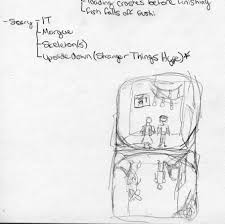 - loading crashes before finishing
- fish falls off sushi.
- Scary - IT
- Morgue
- Skeleton(s)
- Upside down (Stranger Things Huge)*